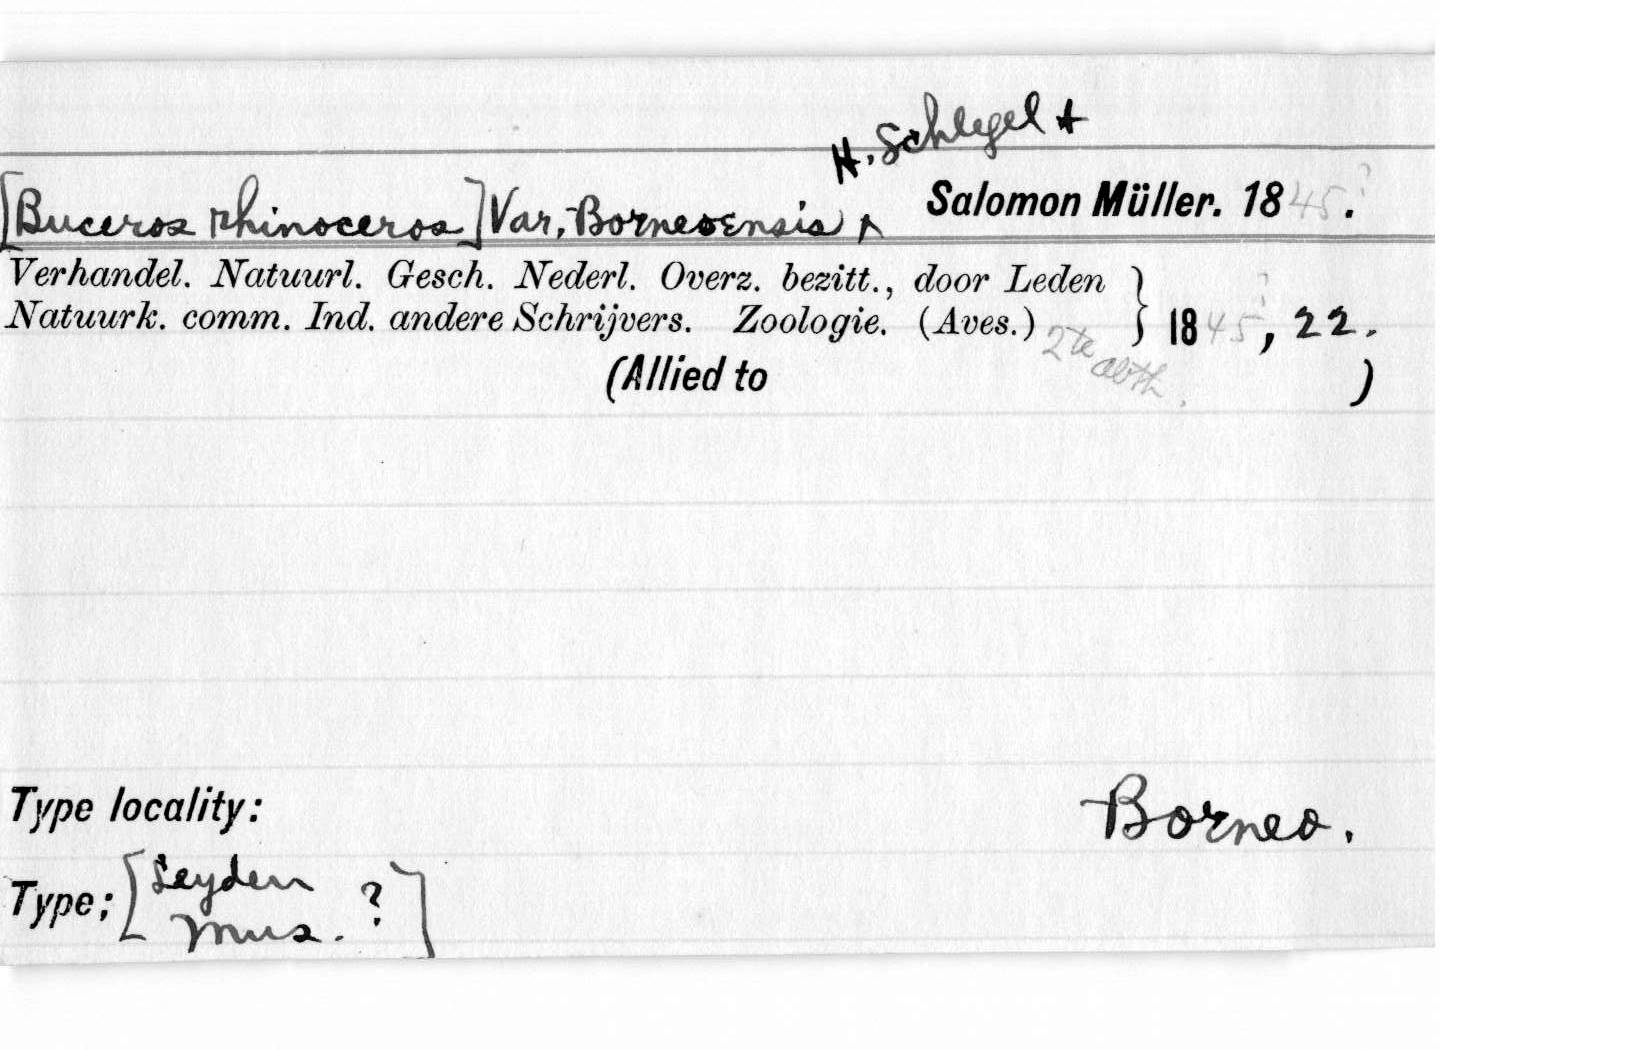 H. Schlegel +
[Buceros rhinoceros] Var. Borneoensis ^ Salomon Müller. 1845?.
Verhandel. Natuurl. Gesch. Nederl. Overz. bezitt., door Leden
Natuurk. comm. Ind. andere Schrijvers. Zoologie. (Aves.) 2te abth. } 1845?, 22.
(Allied to )
Type locality: Borneo.
Type; [Leyden
Mus. ?]